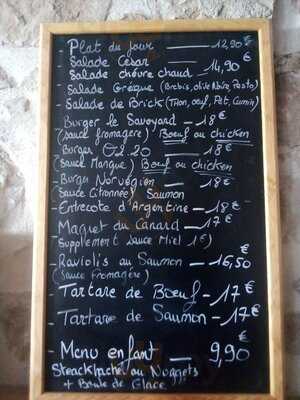 - Plat du jour — 12,90 €
- Salade Cesar
- Salade chèvre chaud — 14,90 €
- Salade Grèque (Brebis, olive Noire, Pesto)
- Salade de Brick (Thon, oeuf, Pdt, Cumin)
- Burger le Savoyard — 18 €
(sauce fromagère) Boeuf ou chicken
- Burger O2.20 — 18 €
(Sauce Mangue) Boeuf ou chicken
- Burger Norvégien — 18 €
(Sauce Citronnée) Saumon
- Entrecote d'Argentine — 18 €
- Magret du Canard — 17 €
Supplement Sauce Miel 1€)
- Raviolis au Saumon — 16,50 €
(Sauce Fromagère)
- Tartare de Boeuf — 17 €
- Tartare de Saumon — 17 €
- Menu enfant — 9,90 €
Steackhaché ou Nuggets
+ Boule de Glace